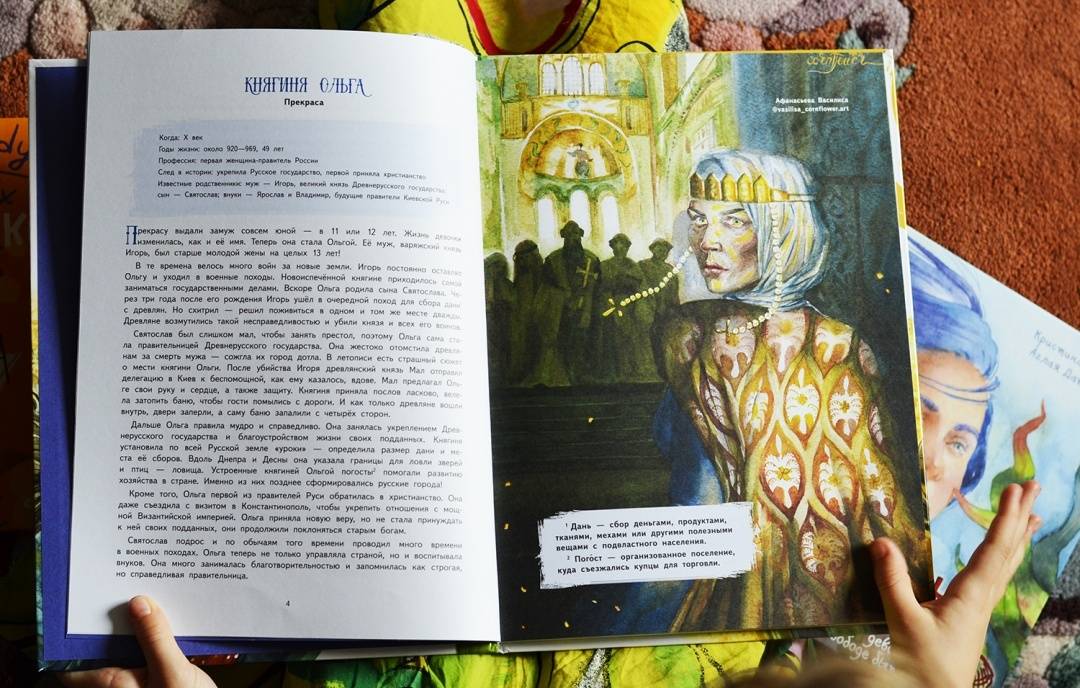 КНЯГИНЯ ОЛЬГА
Прекраса
Когда: X век
Годы жизни: около 920—969, 49 лет
Профессия: первая женщина-правитель России
След в истории: укрепила Русское государство, первой приняла христианство
Известные родственники: муж — Игорь, великий князь Древнерусского государства;
сын — Святослав; внуки — Ярослав и Владимир, будущие правители Киевской Руси
Прекрасу выдали замуж совсем юной — в 11 или 12 лет. Жизнь девочки
изменилась, как и её имя. Теперь она стала Ольгой. Её муж, варяжский князь
Игорь, был старше молодой жены на целых 13 лет!
В те времена велось много войн за новые земли. Игорь постоянно оставлял
Ольгу и уходил в военные походы. Новоиспечённой княгине приходилось самой
заниматься государственными делами. Вскоре Ольга родила сына Святослава. Че-
рез три года после его рождения Игорь ушёл в очередной поход для сбора дани
с древлян. Но схитрил — решил поживиться в одном и том же месте дважды.
Древляне возмутились такой несправедливостью и убили князя и всех его воинов.
Святослав был слишком мал, чтобы занять престол, поэтому Ольга сама ста-
ла правительницей Древнерусского государства. Она жестоко отомстила древля-
нам за смерть мужа — сожгла их город дотла. В летописи есть страшный сюжет
о мести княгини Ольги. После убийства Игоря древлянский князь Мал отправил
делегацию в Киев к беспомощной, как ему казалось, вдове. Мал предлагал Оль-
ге свои руку и сердце, а также защиту. Княгиня приняла послов ласково, веле-
ла затопить баню, чтобы гости помылись с дороги. И как только древляне вошли
внутрь, двери заперли, а саму баню запалили с четырёх сторон.
Дальше Ольга правила мудро и справедливо. Она занялась укреплением Древ-
нерусского государства и благоустройством жизни своих подданных. Княгиня
установила по всей Русской земле «уроки» — определила размер дани и ме-
ста её сборов. Вдоль Днепра и Десны она указала границы для ловли зверей
и птиц — ловища. Устроенные княгиней Ольгой погосты² помогали развитию
хозяйства в стране. Именно из них позднее сформировались русские города!
Кроме того, Ольга первой из правителей Руси обратилась в христианство. Она
даже съездила с визитом в Константинополь, чтобы укрепить отношения с мощ-
ной Византийской империей. Ольга приняла новую веру, но не стала принуждать
к ней своих подданных, они продолжили поклоняться старым богам.
Святослав подрос и по обычаям того времени проводил много времени
в военных походах. Ольга теперь не только управляла страной, но и воспитывала
внуков. Она много занималась благотворительностью и запомнилась как строгая,
но справедливая правительница.
4
cornflower
Афанасьева Василиса
@vasilisa_cornflower.art
¹ Дань — сбор деньгами, продуктами,
тканями, мехами или другими полезными
вещами с подвластного населения.
² Погост — организованное поселение,
куда съезжались купцы для торговли.
Кристина
Аглая